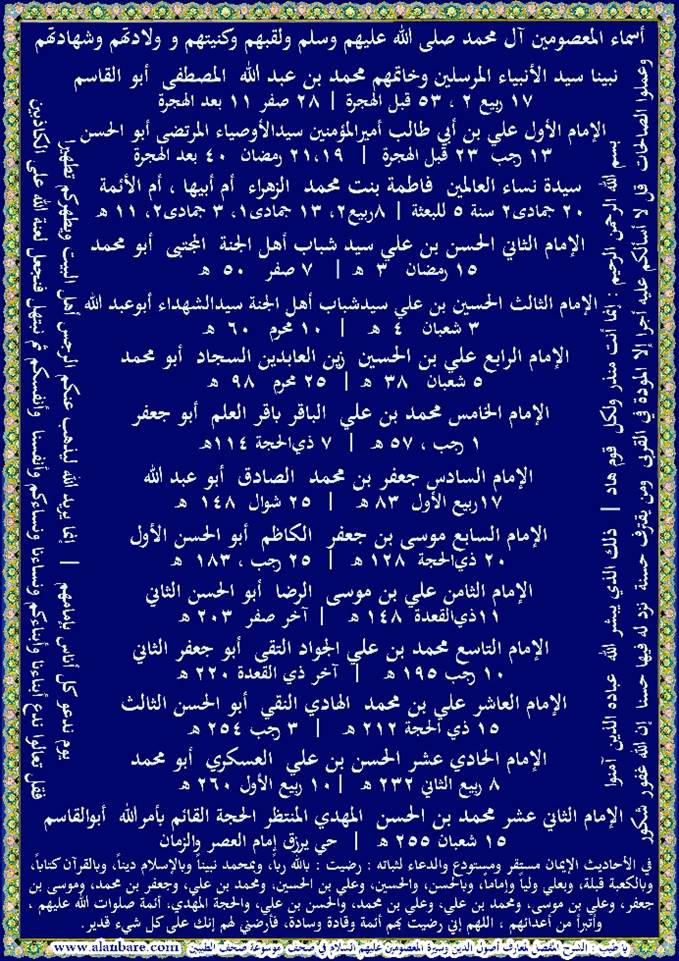 أسماء المعصومين آل محمد صلى الله عليهم وسلم ولقبهم وكنيتهم و ولادتهم وشهادتهم
نبينا سيد الأنبياء المرسلين وخاتمهم محمد بن عبد الله المصطفى أبو القاسم
١٧ ربيع ٢ ، ٥٣ قبل الهجرة | ٢٨ صفر ١١ بعد الهجرة
الإمام الأول علي بن أبي طالب أميرالمؤمنين سيدالأوصياء المرتضى أبو الحسن
١٣ رجب ٢٣ قبل الهجرة | ٢١،١٩ رمضان ٤٠ بعد الهجرة
سيدة نساء العالمين فاطمة بنت محمد الزهراء أم أبيها ، أم الأئمة
٢٠ جمادى٢ سنة ٥ للبعثة | ٨ربيع٢، ١٣ جمادى١، ٣ جمادى٢، ١١ هـ
الإمام الثاني الحسن بن علي سيد شباب أهل الجنة المجتبى أبو محمد
١٥ رمضان ٣ هـ | ٧ صفر ٥٠ هـ
الإمام الثالث الحسين بن علي سيدشباب أهل الجنة سيدالشهداء أبوعبد الله
٣ شعبان ٤ هـ | ١٠ محرم ٦٠ هـ
الإمام الرابع علي بن الحسين زين العابدين السجاد أبو محمد
٥ شعبان ٣٨ هـ | ٢٥ محرم ٩٨ هـ
الإمام الخامس محمد بن علي الباقر باقر العلم أبو جعفر
١ رجب ، ٥٧ هـ | ٧ ذي‌الحجة ١١٤هـ
الإمام السادس جعفر بن محمد الصادق أبو عبد الله
١٧ربيع الأول ٨٣ هـ | ٢٥ شوال ١٤٨ هـ
الإمام السابع موسى بن جعفر الكاظم أبو الحسن الأول
٢٠ ذي‌الحجة ١٢٨ هـ | ٢٥ رجب ، ١٨٣ هـ
الإمام الثامن علي بن موسى الرضا أبو الحسن الثاني
١١ذي‌القعدة ١٤٨ هـ | آخر صفر ٢٠٣ هـ
الإمام التاسع محمد بن علي الجواد التقي أبو جعفر الثاني
١٠ رجب ١٩٥ هـ | آخر ذي القعدة ٢٢٠ هـ
الإمام العاشر علي بن محمد الهادي النقي أبو الحسن الثالث
١٥ ذي الحجة ٢١٢ هـ | ٣ رجب ٢٥٤ هـ
الإمام الحادي عشر الحسن بن علي العسكري أبو محمد
٨ ربيع الثاني ٢٣٢ هـ | ١٠ ربيع الأول ٢٦٠ هـ
الإمام الثاني عشر محمد بن الحسن المهدي المنتظر الحجة القائم بأمرالله أبوالقاسم
١٥ شعبان ٢٥٥ هـ | حي يرزق إمام العصر والزمان
في الأحاديث الإيمان مستقر ومستودع والدعاء لثباته : رضيت : بالله رباً، وبمحمد نبيناً وبالإسلام ديناً، وبالقرآن كتاباً،
وبالكعبة قبلة، وبعلي ولياً وإماماً، وبالحسن، والحسين، وعلي بن الحسين، ومحمد بن علي، وجعفر بن محمد، وموسى بن
جعفر، وعلي بن موسى، ومحمد بن علي، وعلي بن محمد، والحسن بن علي، والحجة المهدي، أئمة صلوات الله عليهم ،
وأتبرأ من أعدائهم ، اللهم إني رضيت بهم أئمة وقادة وسادة، فأرضني لهم إنك على كل شيء قدير.
بسم الله الرحمن الرحيم : إنما أنت منذر ولكل قوم هاد | ذلك الذي يبشر الله عباده الذين آمنوا
وعملوا الصالحات قل لا أسألكم عليه أجرا إلا المودة في القربى ومن يقترف حسنة نزد له فيها حسنا إن الله غفور شكور
يوم ندعو كل أناس بإمامهم | إنما يريد الله ليذهب عنكم الرجس أهل البيت ويطهركم تطهيرا
فقل تعالوا ندع أبناءنا وأبناءكم ونساءنا ونساءكم وأنفسنا وأنفسكم ثم نبتهل فنجعل لعنة الله على الكاذبين
يا طيب : الشرح المفصل لمعارف أصول الدين وسيرة المعصومين عليهم السلام في صحف موسوعة صحف الطيبين www.alanbare.com